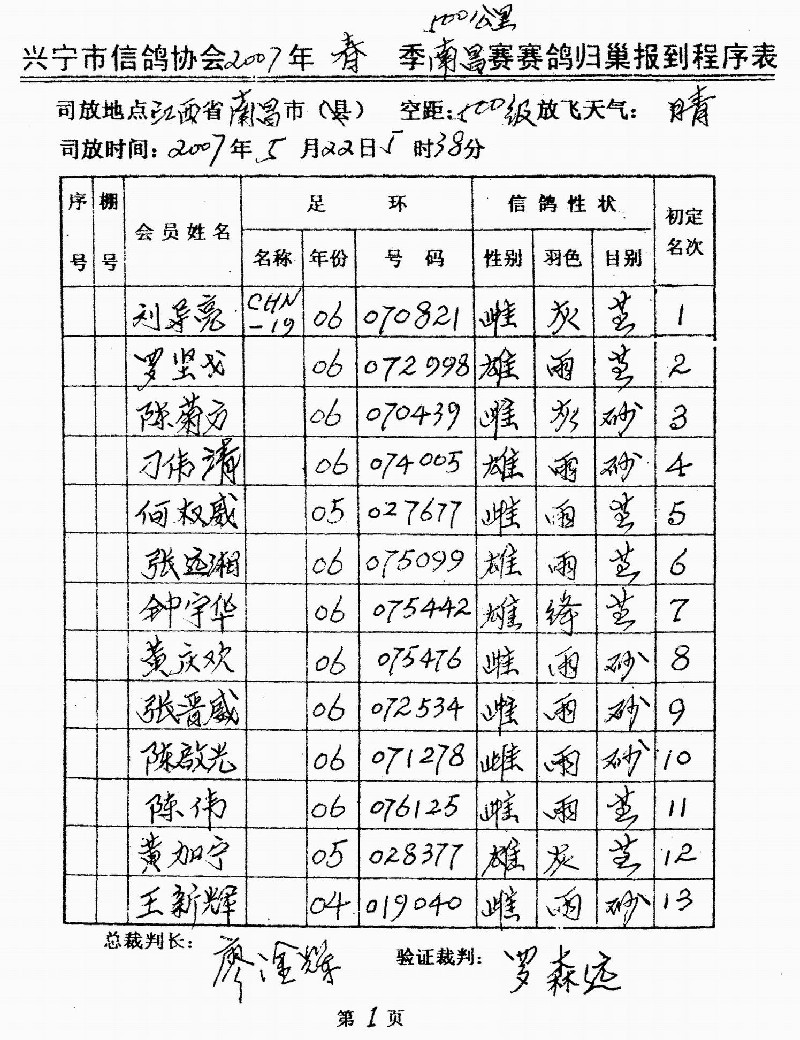 500公里
兴宁市信鸽协会2007年 春 季南昌赛赛鸽归巢报到程序表
司放地点江西省南昌市（县） 空距：500级放飞天气： 晴
司放时间：2007年5月22日5时38分
序号 棚号 会员姓名 足环 信鸽性状 初定名次
名称 年份 号码 性别 羽色 目别
刘导亮 CHN-19 06 070821 雌 灰 黄 1
罗坚戈 06 072998 雄 雨 黄 2
陈菊方 06 070439 雌 灰 砂 3
刁伟清 06 074005 雄 雨 砂 4
何权威 05 027677 雌 雨 黄 5
张远湘 06 075099 雄 雨 黄 6
钟宇华 06 075442 雄 绛 黄 7
黄庆欢 06 075476 雌 雨 砂 8
张晋威 06 072534 雌 雨 砂 9
陈啟光 06 071278 雌 雨 砂 10
陈伟 06 076125 雌 雨 黄 11
黄加宁 05 028377 雄 灰 黄 12
王新辉 04 019040 雌 雨 砂 13
总裁判长： 廖淦辉 验证裁判： 罗森远
第1页